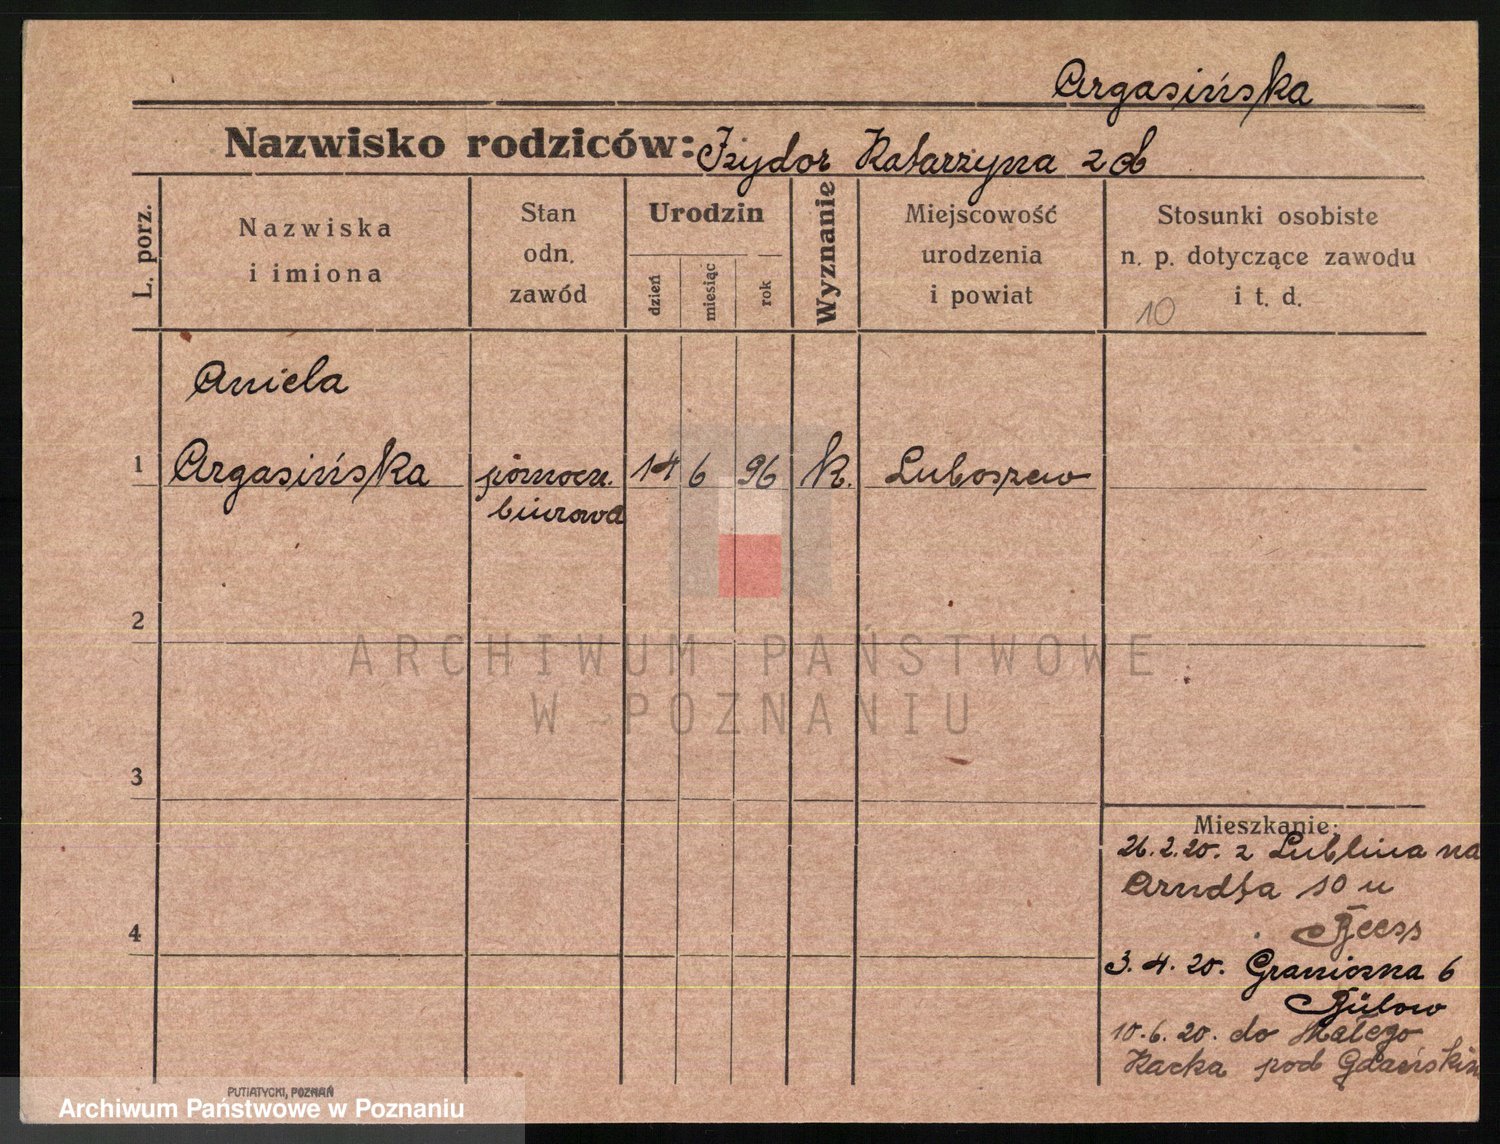 Argasińska
Nazwisko rodziców: Izydor Katarzyna z d
L. porz.
Nazwiska
i imiona
Stan
odn.
zawód
Urodzin
dzień
miesiąc
rok
Wyznanie
Miejscowość
urodzenia
i powiat
Stosunki osobiste
n. p. dotyczące zawodu
i t. d.
10
Aniela
1 Argasińska pomocn. 14 6 96 k. Luboszew
biurowa
2
ARCHIWUM PAŃSTWOWE
W POZNANIU
3
Mieszkanie:
26.2.20. z Lublina na
Arndta 10 u
4
3.4.20. Graniczna 6
Bülow
10.6.20. do Małego
Kacka pod Gdańskim
PUTIATYCKI, POZNAŃ
Archiwum Państwowe w Poznaniu